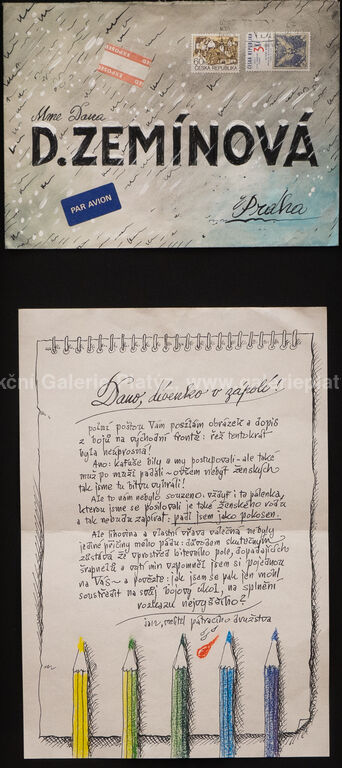 EXPOSED
60h ČESKÁ REPUBLIKA
ČESKÁ REPUBLIKA 3
Mme Dana
D.ZEMÍNOVÁ
PAR AVION
Praha
kční Galerie Platý
www.galerieplat
Dano, děvenko v zápolí!
polní poštou Vám posílám obrázek a dopis
z bojů na východní frontě: řež tentokrát
byla neúprosná!
Ano: kaťuše bily a my postupovali – ale také
muž po muži padali – ovšem nebýt ženských
tak jsme tu bitvu vyhráli!
Ale to vám nebylo souzeno: vždyť i ta pálenka,
kterou jsme se posilovali je také ženského rodu
a tak nebudu zapírat: padl jsem jako pokosen.
Ale lihovina a vlastní vřava válečná nebyly
jediné příčiny mého pádu: důvodem skutečným
zůstává že uprostřed bitevního pole, dopadajících
šrapnelů a min vzpomněl jsem si pojednou
na Vás – a povězte: jak jsem se pak jen mohl
soustředit na svůj bojový úkol, na splnění
rozkazu nejvyššího?
velitel pátracího družstva